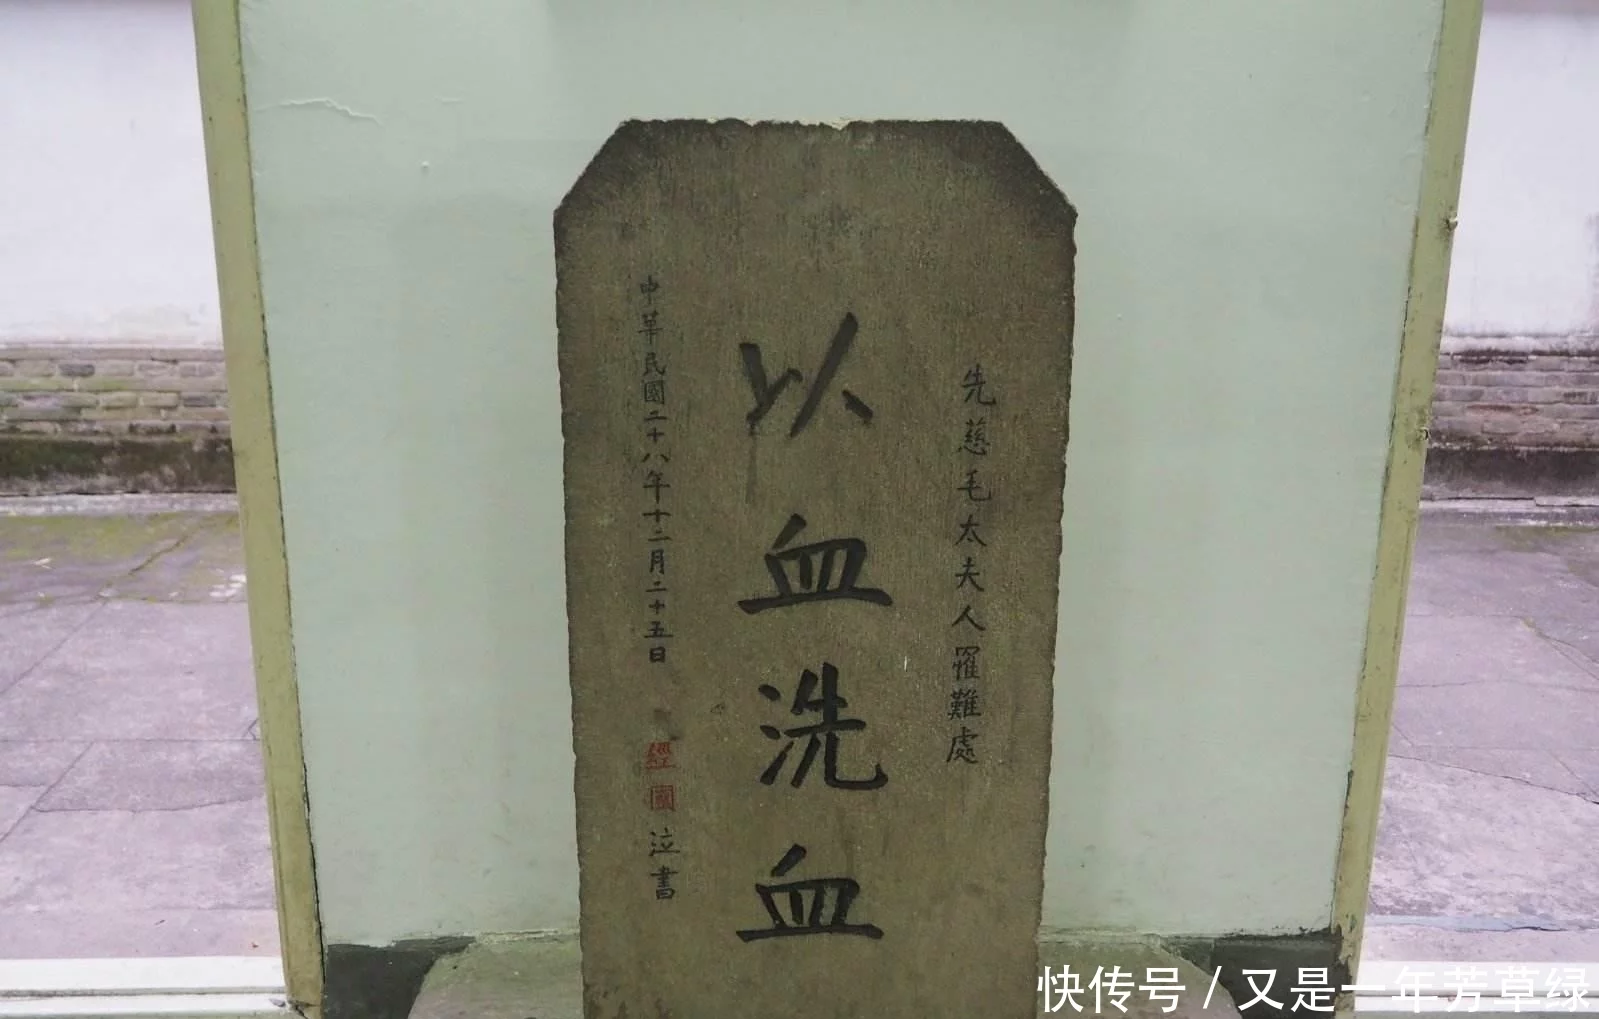 先慈毛太夫人罹難處
以血洗血
中華民國二十八年十二月二十五日 經國泣書
快传号/又是一年芳草绿